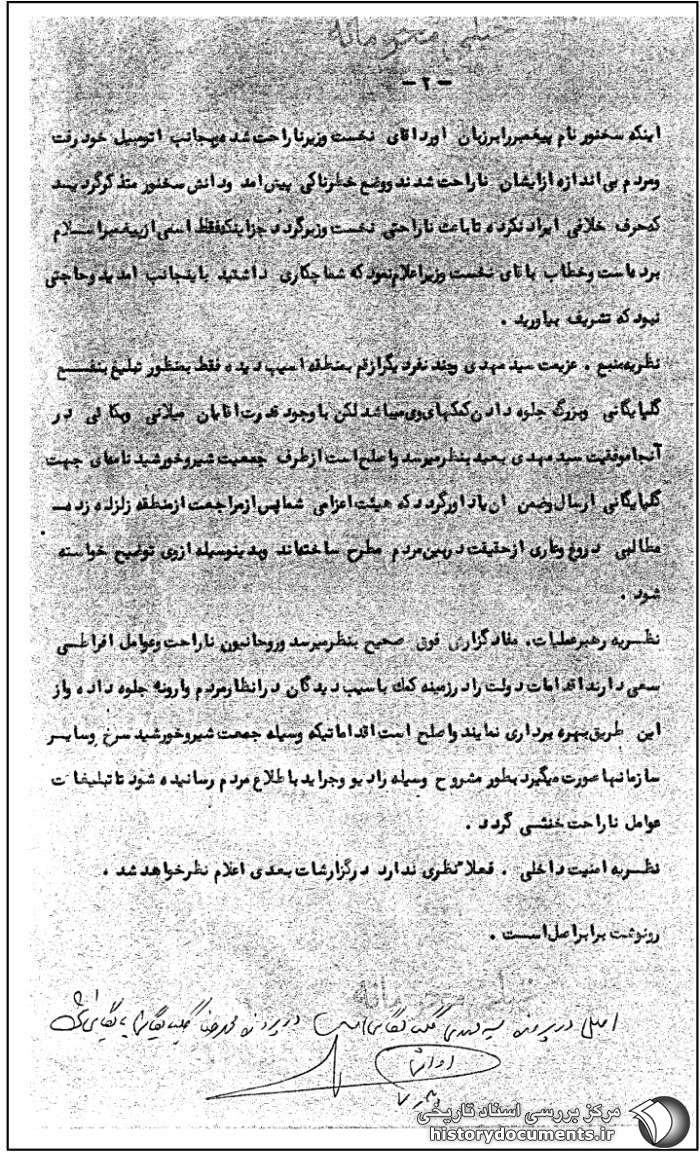 خیلی محرمانه
-۲-
اینکه سخنور نام پیغمبر را بر زبان اورد اقای نخست وزیر ناراحت شد و بجانب اتومبیل خود رفت
ومردم بی اندازه از ایشان ناراحت شدند و وضع خطرناکی پیش امد ودانش سخنور متذکر گردید
که حرف خلافی ایراد نکرده تا باعث ناراحتی نخست وزیر گردد جز اینکه فقط اسمی از پیغمبر اسلام
برده است وخطاب باقای نخست وزیر اعلام نمود که شما چکاری داشتید باینجانب امدید وحاجتی
نبود که تشریف بیاورید .
نظریه منبع . عزیمت سید مهدی وچند نفر دیگر از قم بمنطقه اسیب دیده فقط بمنظور تبلیغ بنفع
گلپایگانی وبزرگ جلوه دادن کمکهای وی میباشد لکن با وجود قدرت اقایان میلانی و در
آنجا موفقیت سید مهدی بعید بنظر میرسد واصلح است از طرف جمعیت شیر وخورشید نامه‌ای جهت
گلپایگانی ارسال وضمن ان یاد اور گردد که هیئت اعزامی شما پس از مراجعت از منطقه زلزله زده
مطالبی دروغ وعاری از حقیقت در بین مردم مطرح ساخته‌اند وبدینوسیله از وی توضیح خواسته
شود .
نظریه رهبر عملیات . مفاد گزارش فوق صحیح بنظر میرسد وروحانیون ناراحت وعوامل افراطی
سعی دارند اقدامات دولت را در زمینه کمک باسیب دیدگان در انظار مردم وارونه جلوه داده واز
این طریق بهره برداری نمایند واصلح است اقداماتیکه وسیله جمعیت شیر وخورشید سرخ وسایر
سازمانها صورت میگیرد بطور مشروح وسیله رادیو وجراید باطلاع مردم رسانیده شود تا تبلیغات
عوامل ناراحت خنثی گردد .
نظریه امنیت داخلی . فعلا نظری ندارد در گزارشات بعدی اعلام نظر خواهد شد .
رونوشت برابر اصل است .
خیلی محرمانه
اصل در پرونده سید مهدی گلپایگانی است در پرونده محمدرضا گلپایگانی
مرکز بررسی اسناد تاریخی
historydocuments.ir